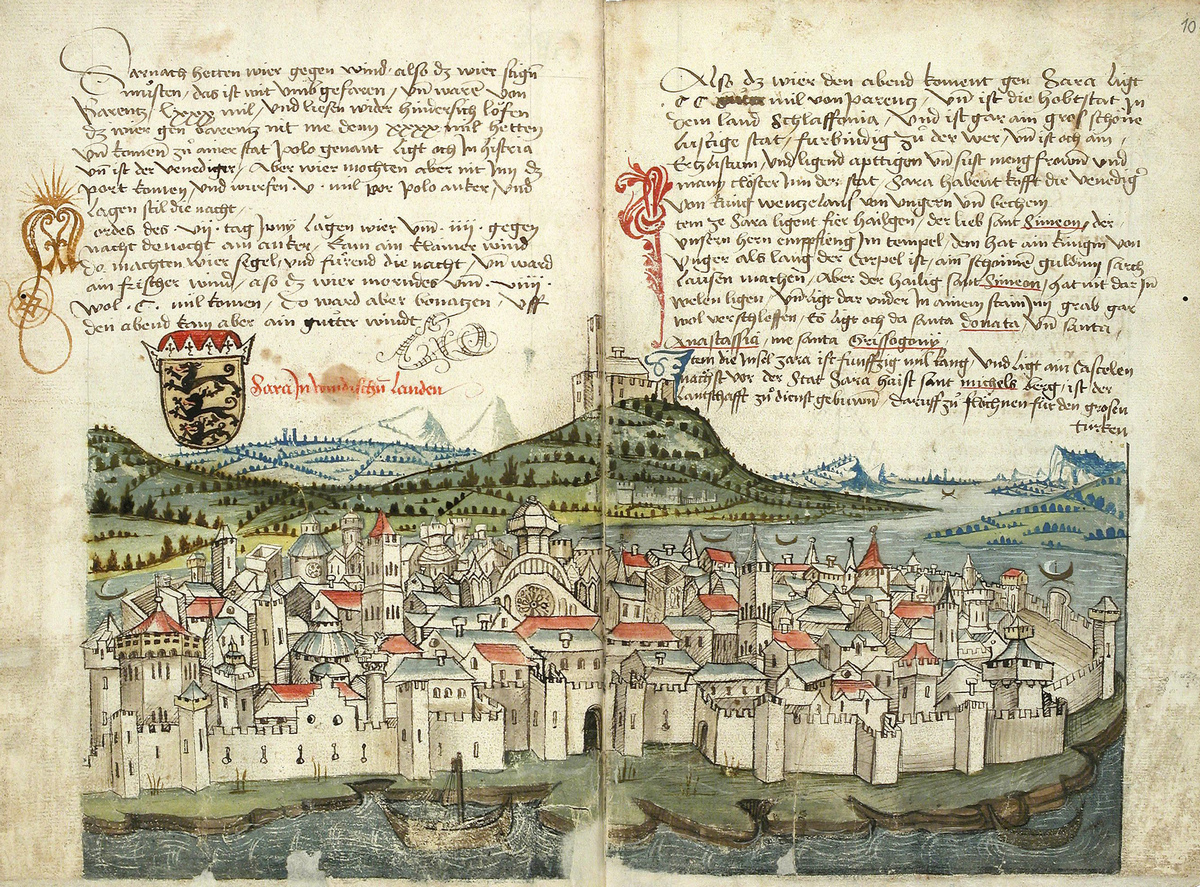 Darnach hetten wier gegen wind, also dz wier stign
musten, das ist wit umb gefaren, Vn ware von
Parentz, lxxxx mil, Vnd liesen wider hindersich lôfen
dz wier gen Parentz nit me denn xxxxx mil hetten
Vn komen zu amer stat polo genant ligt och In histeria
vn ist der Venediger, Aber wier mochten aber nit Inn dz
port komen, Vnd wurfen V. mil vor polo anker, Vnd
Lagen stil die nacht,
ordes des .VII. tag Juny Lagen wier vm .IIII. gegen
nacht denocht am anker, kam ain klainer wind
do machten wier segel, vnd fürend die nacht, Vn ward
ain frischer wind, also dz wier morndes vm .VIIII.
wol .C. mil komen, Do ward aber bonatzen, Vff
den abend kam aber ain gutter windt
Sara In windischn landen
10
Also dz wier den abend koment gen Sara ligt
CC mil von parentz, Vn ist die hobtstat In
dem land Schlaffonia, Vnd ist gar ain gros schöne
lustige stat, fürbindig zu der wer, Vn ist och ain
Ertzbistum Vnd ligend apttigen Vn sust meng frowen Vnd
many closter Inn der stat, Sara habent kofft die Venedig
von kung wentzelaus von Vngern Vn bechem
tem ze Sara ligent fier hailgen, der lieb sant Simeon, der
vnsern hern empfieng Im tempel, dem hat ain kungin von
Vnger als lang der Corpel ist, ain schoinen guldinn sarch
lausen machen, Aber der hailig sant Simeon, hat nit dar In
welen ligen, Vn ligt dar vnder In ainem stainInn grab gar
wol verschlossen, Es ligt och da santa donata, Vn santa
Anastassia, me santa Grissogony
tem die Insel zara ist funffzig mil lang, Vnd ligt ain Castelen
nachst vor der Stat Sara haist sant michels berg, ist der
lantschafft zu dienst gebuwen daruff zu flöchnen für den grosen
türken